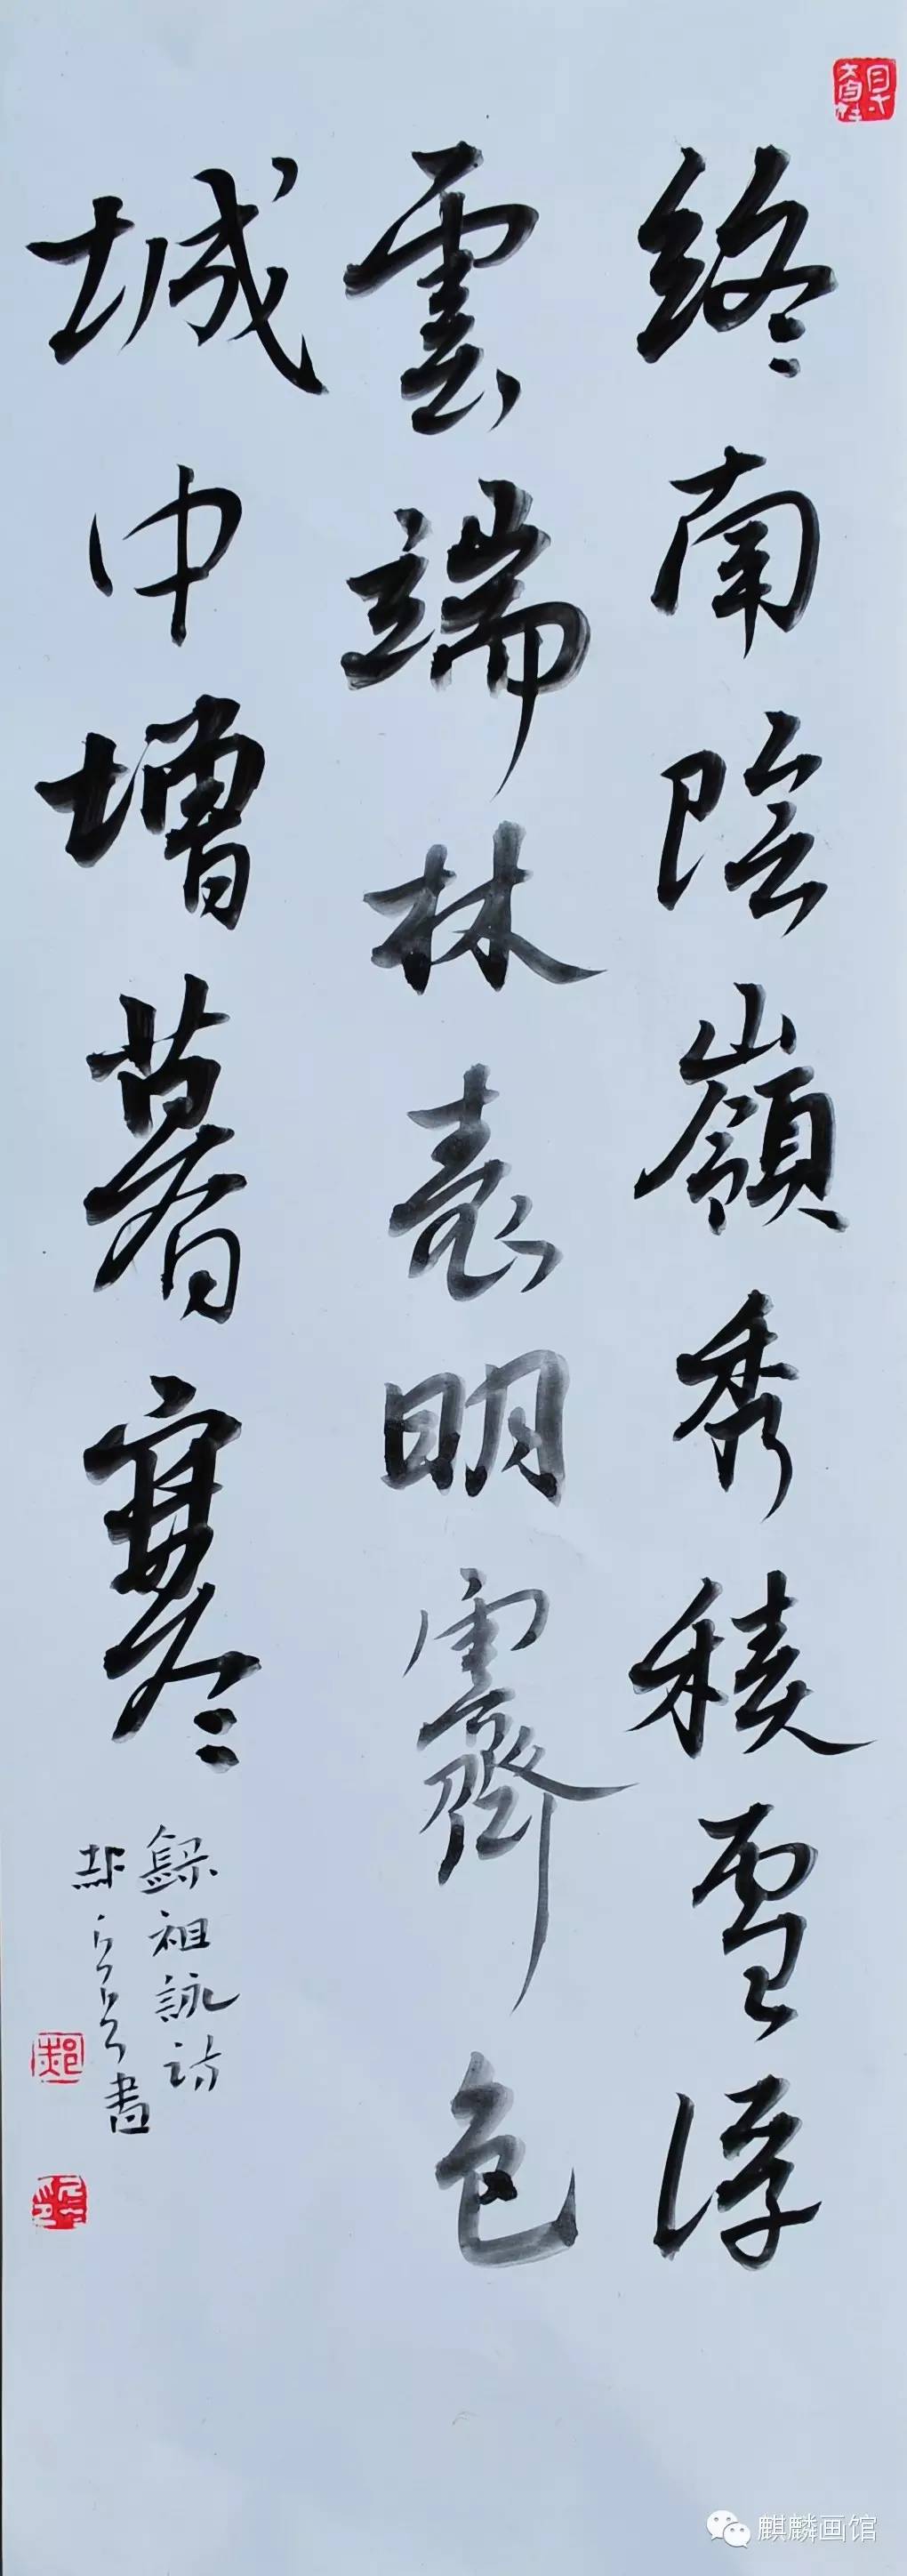 终南陰嶺秀積雪浮
雲端林表明霽色
城中增暮寒
録祖詠詩
書
麒麟画馆